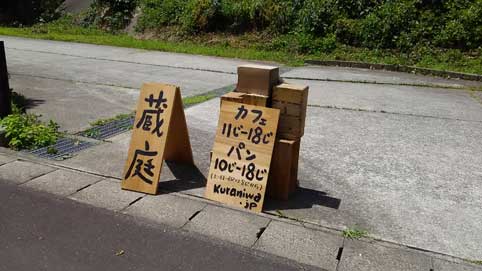 蔵庭
カフェ
11じ-18じ
パン
10じ-18じ
kuraniwa
.jp